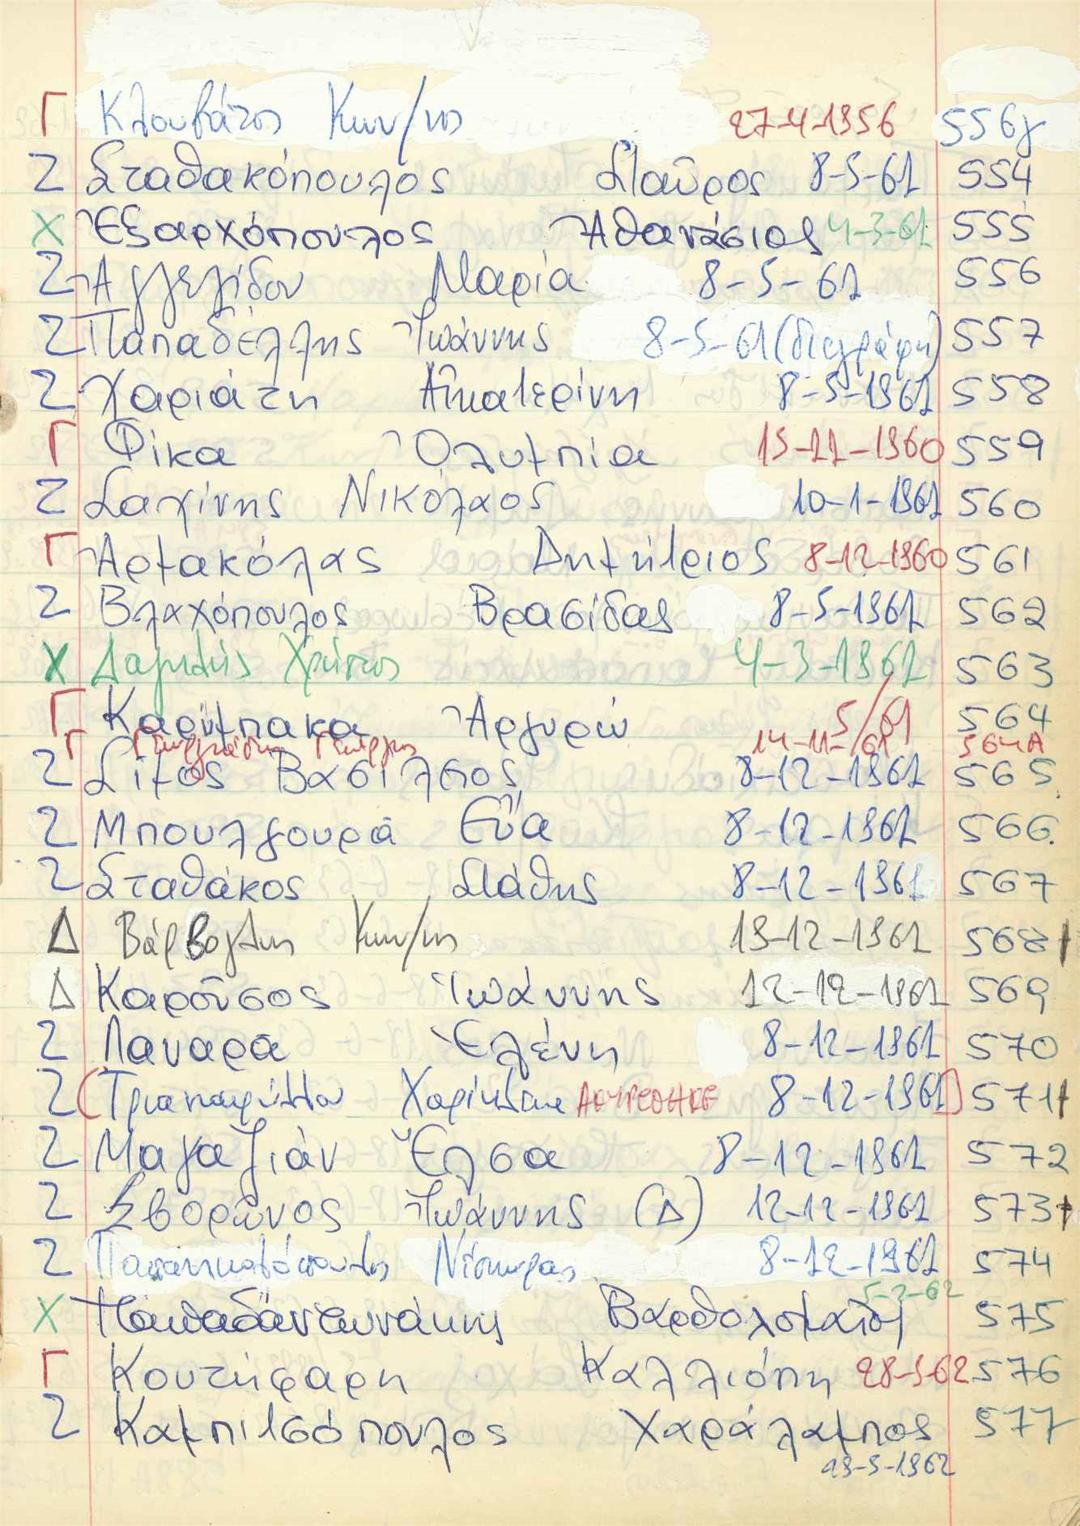 Γ Κλουβάτος Κων/νος 27-4-1956 556γ
Ζ Σταθακόπουλος Σταῦρος 8-5-61 554
Χ Ἐξαρχόπουλος Ἀθανάσιος 4-3-61 555
Ζ Ἀγγελίδου Μαρία 8-5-61 556
Ζ Παπαδέλλης Ἰωάννης 8-5-61 (διεγράφη) 557
Ζ Χαριάτη Αἰκατερίνη 8-5-1961 558
Γ Φίκα Ὀλυμπία 15-11-1960 559
Ζ Σαγίνης Νικόλαος 10-1-1961 560
Γ Ἀρμακόλας Δημήτριος 8-12-1960 561
Ζ Βλαχόπουλος Βρασίδας 8-5-1961 562
Χ Χρῆστος 4-3-1961 563
Γ Καρύμπακα Ἀργυρώ 5/61 564
Γ Γεώργιος 14-11-61 564Α
Ζ Σίμος Βασίλειος 8-12-1961 565
Ζ Μπουλγουρά Εὔα 8-12-1961 566
Ζ Σταθάκος Στάθης 8-12-1961 567
Δ Βάρβογλης Κων/νος 13-12-1961 568
Δ Καροῦσος Ἰωάννης 12-12-1961 569
Ζ Λαναρᾶ Ἑλένη 8-12-1961 570
Ζ (Τριανταφύλλου Χαρίκλεια ΑΚΥΡΩΘΗΚΕ 8-12-1961) 571
Ζ Μαγαζιάν Ἔλσα 8-12-1961 572
Ζ Σβορῶνος Ἰωάννης (Δ) 12-12-1961 573
Ζ 8-12-1961 574
Χ Παπαδαντωνάκης Βαρθολομαῖος 5-2-62 575
Γ Κουτήφαρη Καλλιόπη 28-3-62 576
Ζ Καμπιτσόπουλος Χαράλαμπος 577
23-3-1962